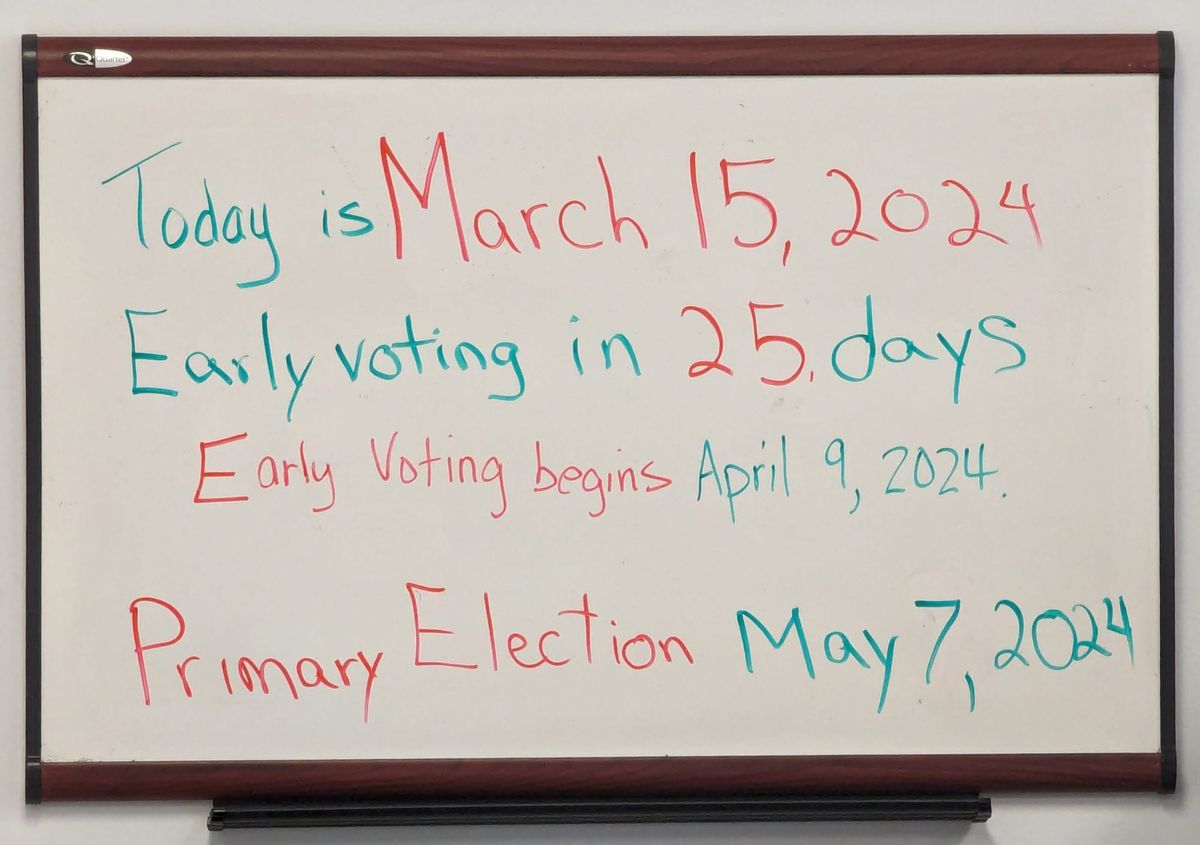 Quartet
Today is March 15, 2024
Early voting in 25. days
Early Voting begins April 9, 2024.
Primary Election May 7, 2024